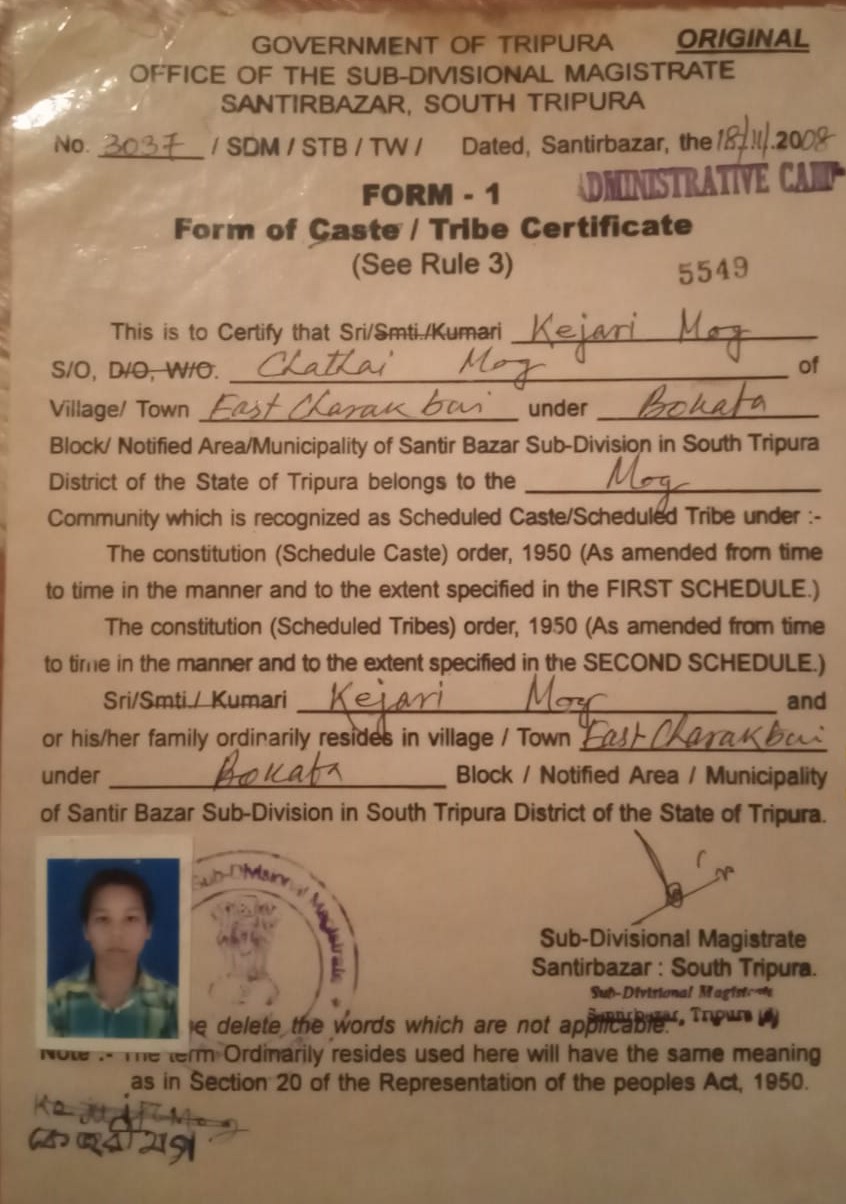 GOVERNMENT OF TRIPURA ORIGINAL
OFFICE OF THE SUB-DIVISIONAL MAGISTRATE
SANTIRBAZAR, SOUTH TRIPURA
No. 3037 / SDM / STB / TW / Dated, Santirbazar, the 18/11/.2008
ADMINISTRATIVE CAMP
FORM - 1
Form of Caste / Tribe Certificate
(See Rule 3)
5549
This is to Certify that Sri/Smti./Kumari Kejari Mog
S/O, D/O, W/O. Chathai Mog of
Village/ Town East Charakbai under Bokafa
Block/ Notified Area/Municipality of Santir Bazar Sub-Division in South Tripura
District of the State of Tripura belongs to the Mog
Community which is recognized as Scheduled Caste/Scheduled Tribe under :-
The constitution (Schedule Caste) order, 1950 (As amended from time
to time in the manner and to the extent specified in the FIRST SCHEDULE.)
The constitution (Scheduled Tribes) order, 1950 (As amended from time
to time in the manner and to the extent specified in the SECOND SCHEDULE.)
Sri/Smti./ Kumari Kejari Mog and
or his/her family ordinarily resides in village / Town East Charakbai
under Bokafa Block / Notified Area / Municipality
of Santir Bazar Sub-Division in South Tripura District of the State of Tripura.
Sub-Divisional Magistrate
Sub-Divisional Magistrate
Santirbazar : South Tripura.
Sub-Divisional Magistrate
Santirbazar, Tripura (S)
delete the words which are not applicable.
Note :- The term Ordinarily resides used here will have the same meaning
as in Section 20 of the Representation of the peoples Act, 1950.